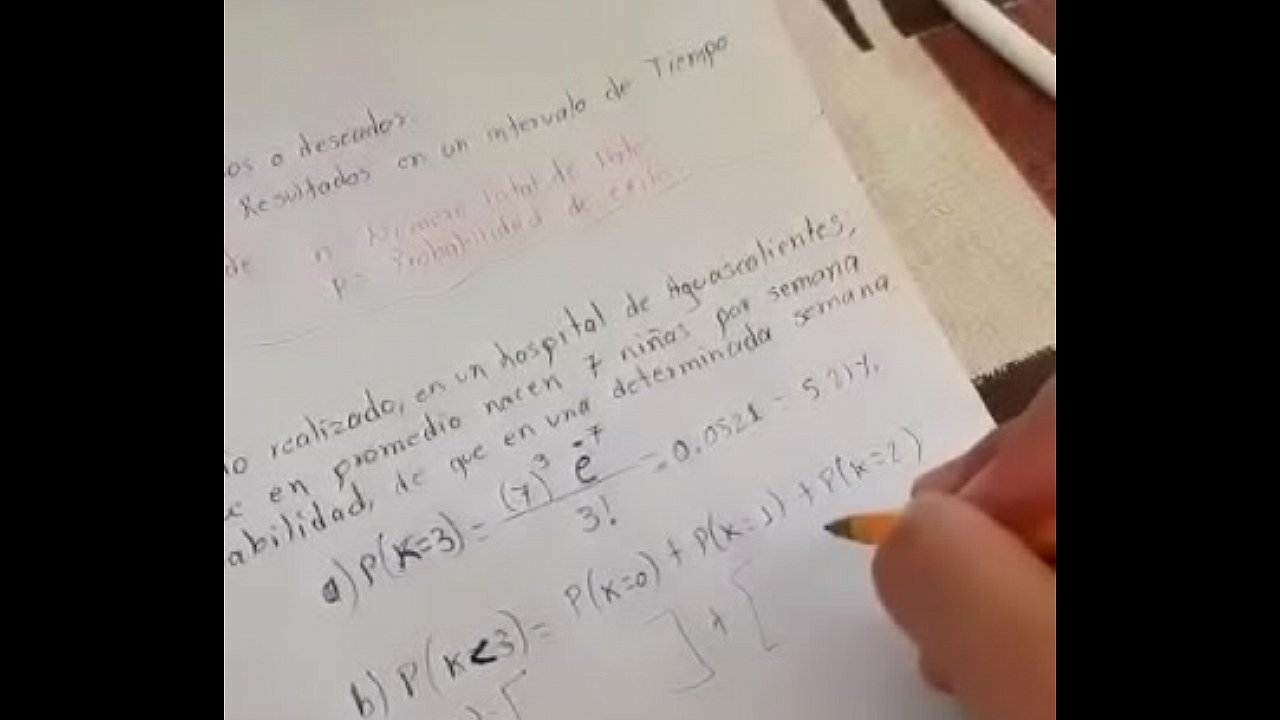 os o deseados.
Resultados en un intervalo de Tiempo
de n Número total de
p= Probabilidad de éxito
io realizado, en un hospital de Aguascalientes,
e en promedio nacen 7 niñas por semana
abilidad, de que en una determinada semana
a) P(K=3) = (7)³ e⁻⁷ / 3! = 0.0521 = 5.21%
b) P(K<3) = P(K=0) + P(K=1) + P(K=2)
[ ] + [